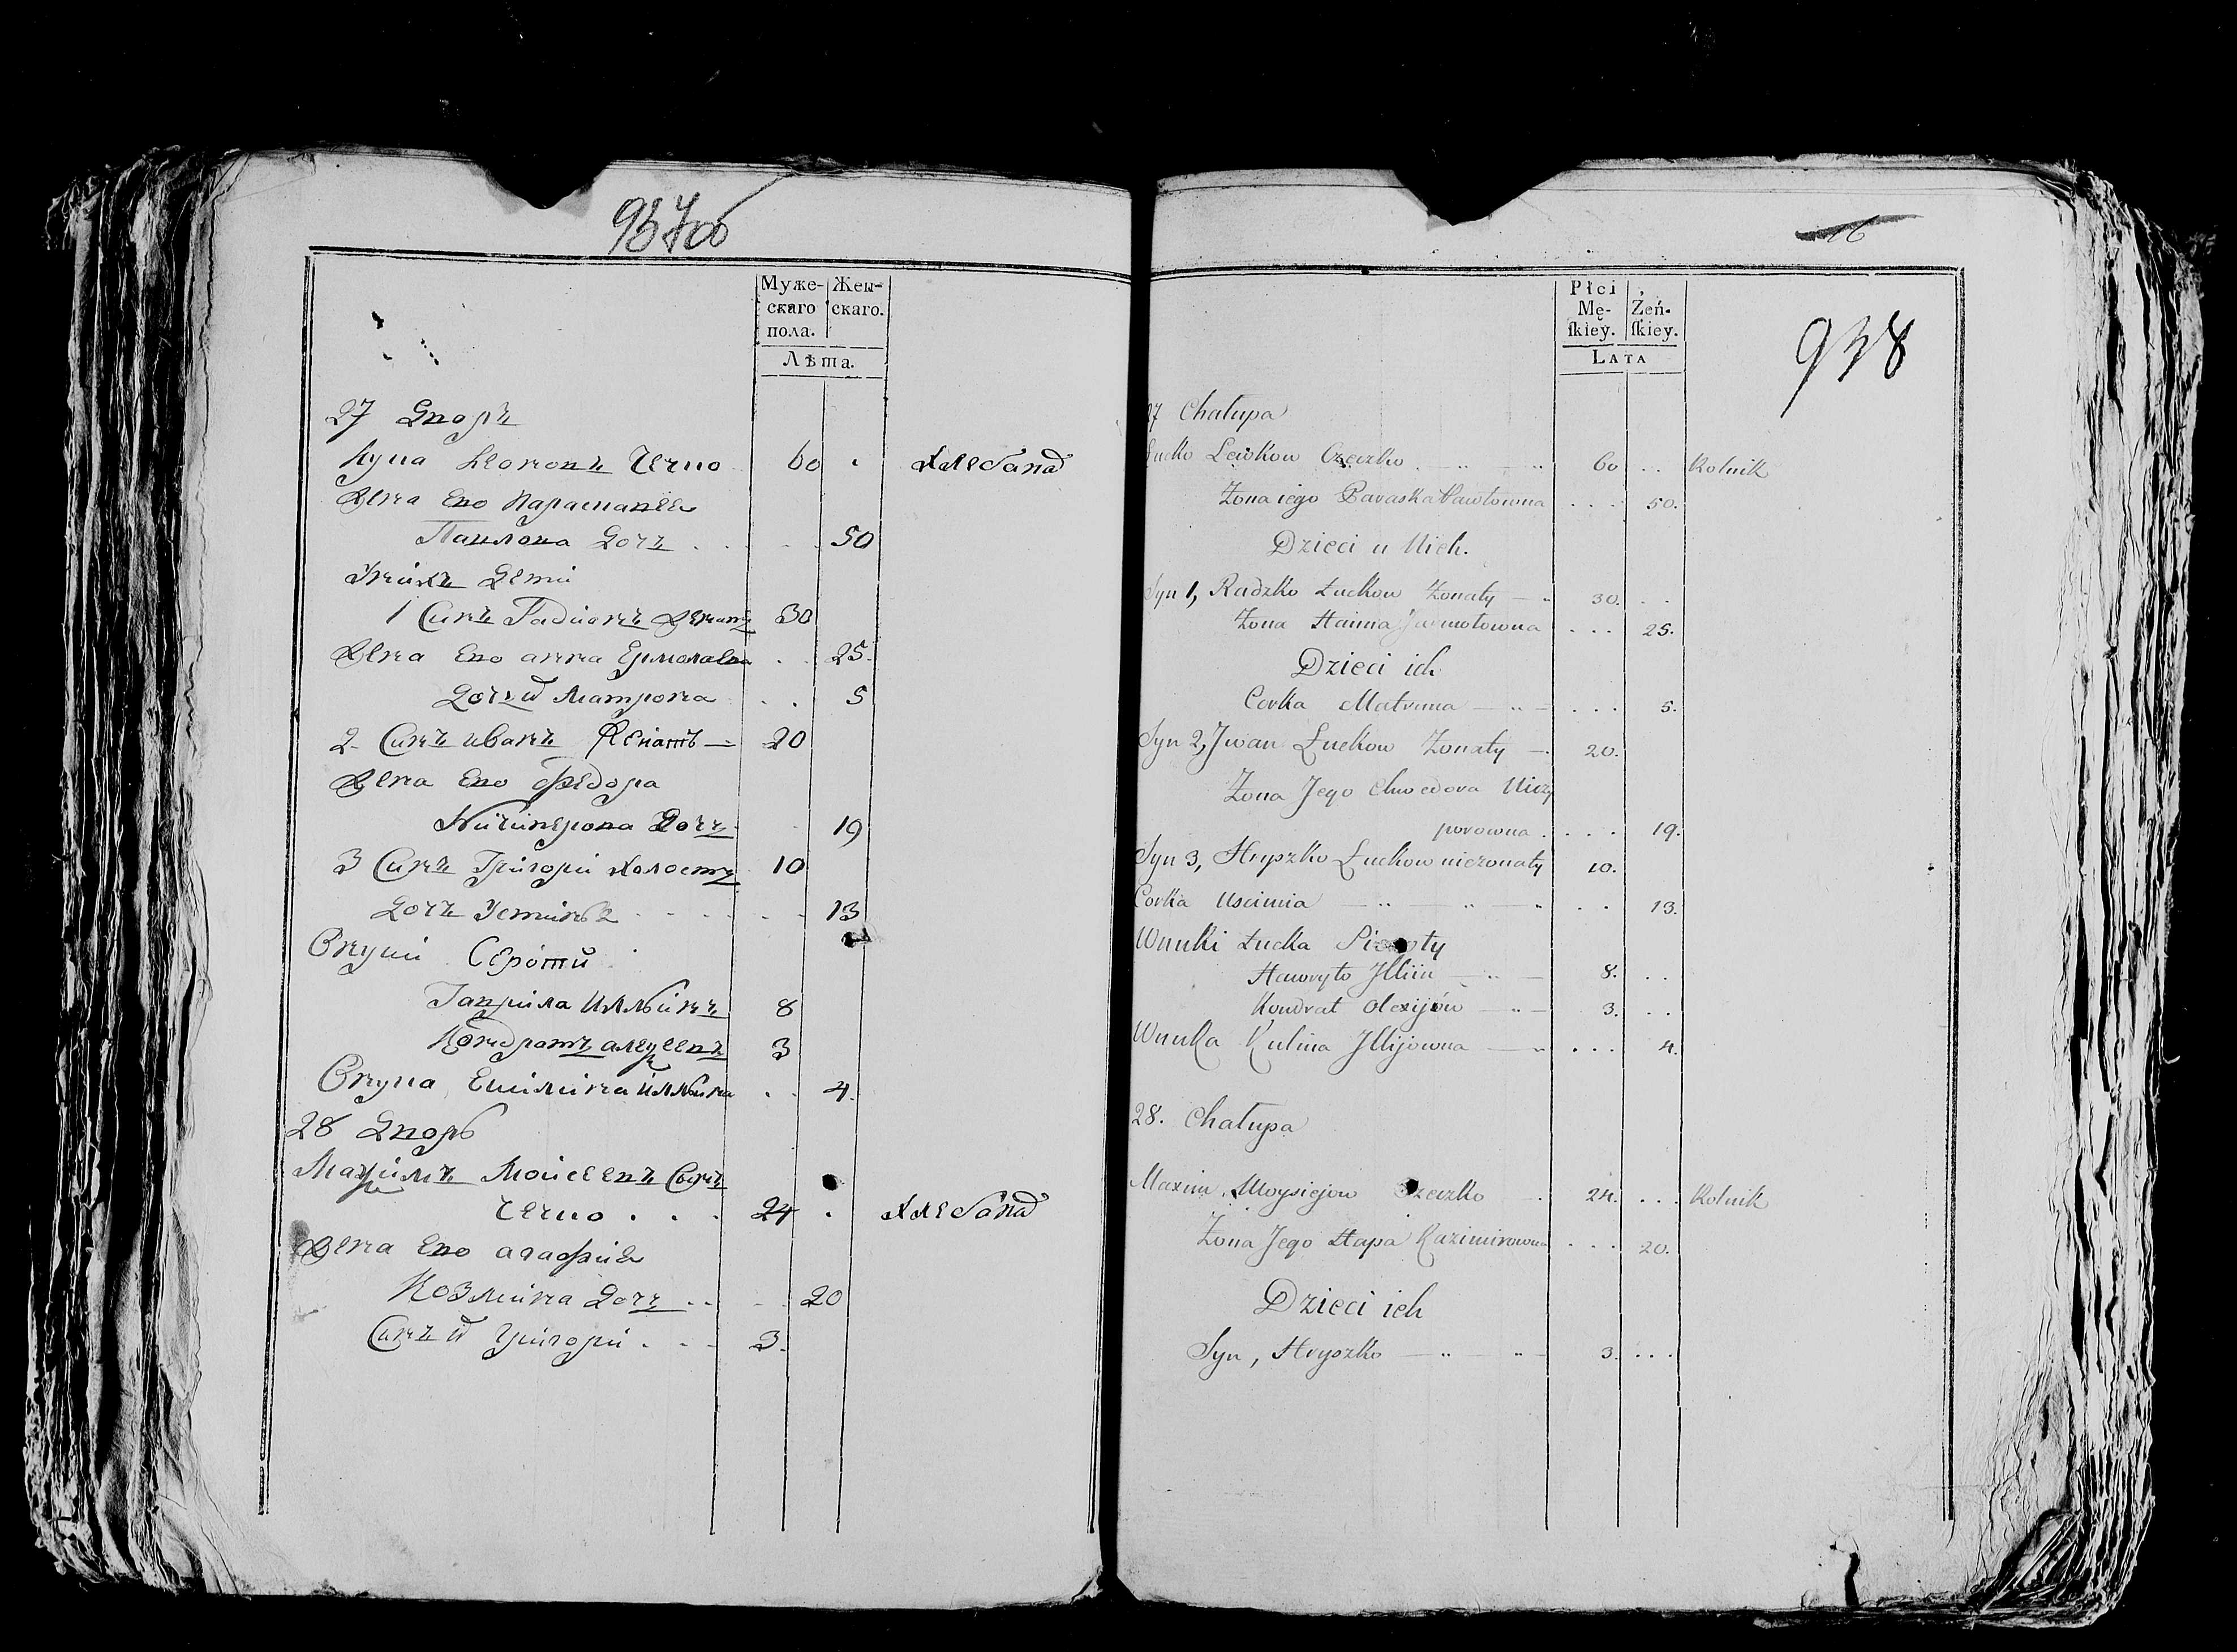 937об
Муже-
скаго
пола.
Жен-
скаго.
Лѣта.
27 Дворъ
Лука Леоновъ Чечко 60 Хлебопа
Жена Его Параскавея
Павлова Дочъ 50
Унихъ Дети
1 Синъ Радионъ Женатъ 30
Жена Его анна Ермолаева 25.
Дочъ й Матрона 5
2 Синъ иванъ Женатъ 20
Жена Его Федора
Ничипорова Дочъ 19
3 Синъ Григори Холостъ 10
Дочъ Устинья 13
Внуки Сероти
Гаврила Илльинъ 8
Кондратъ алеѯеевъ 3
Внука Илльина 4.
28 Дворъ
Маѯимъ Моисеевъ Синъ
Чечко 24 Хлебопа
Жена Его агафия
Козмина Дочъ 20
Синъ й Григори 3.
16
938
Płci
Mę-
ſkiey.
Żeń-
ſkiey.
LATA
27 Chałupa
Łucko Lewkow Czeczko 60 Rolnik
Żona iego Paraska Pawłowna 50.
Dzieci u Nich.
Syn 1, Radzko Łuckow Żonaty 30.
Żona Hanna Jarmołowna 25.
Dzieci ich
Corka Matruna 5.
Syn 2, Jwan Łuckow Żonaty 20.
Żona Jego Chwedora Niczy
porowna 19.
Syn 3, Hryszko Łuckow nieżonaty 10.
Corka Uscimia 13.
Wnuki Łucka Sieroty
Hawryło Jlliin 8.
Kondrat Olexijów 3.
Wnuka Kulina Jllijowna 4.
28. Chałupa
Maxim Moysiejow Czeczko 24. Rolnik
Żona Jego Hapa Kazimirowna 20.
Dzieci ich
Syn, Hryszko 3.